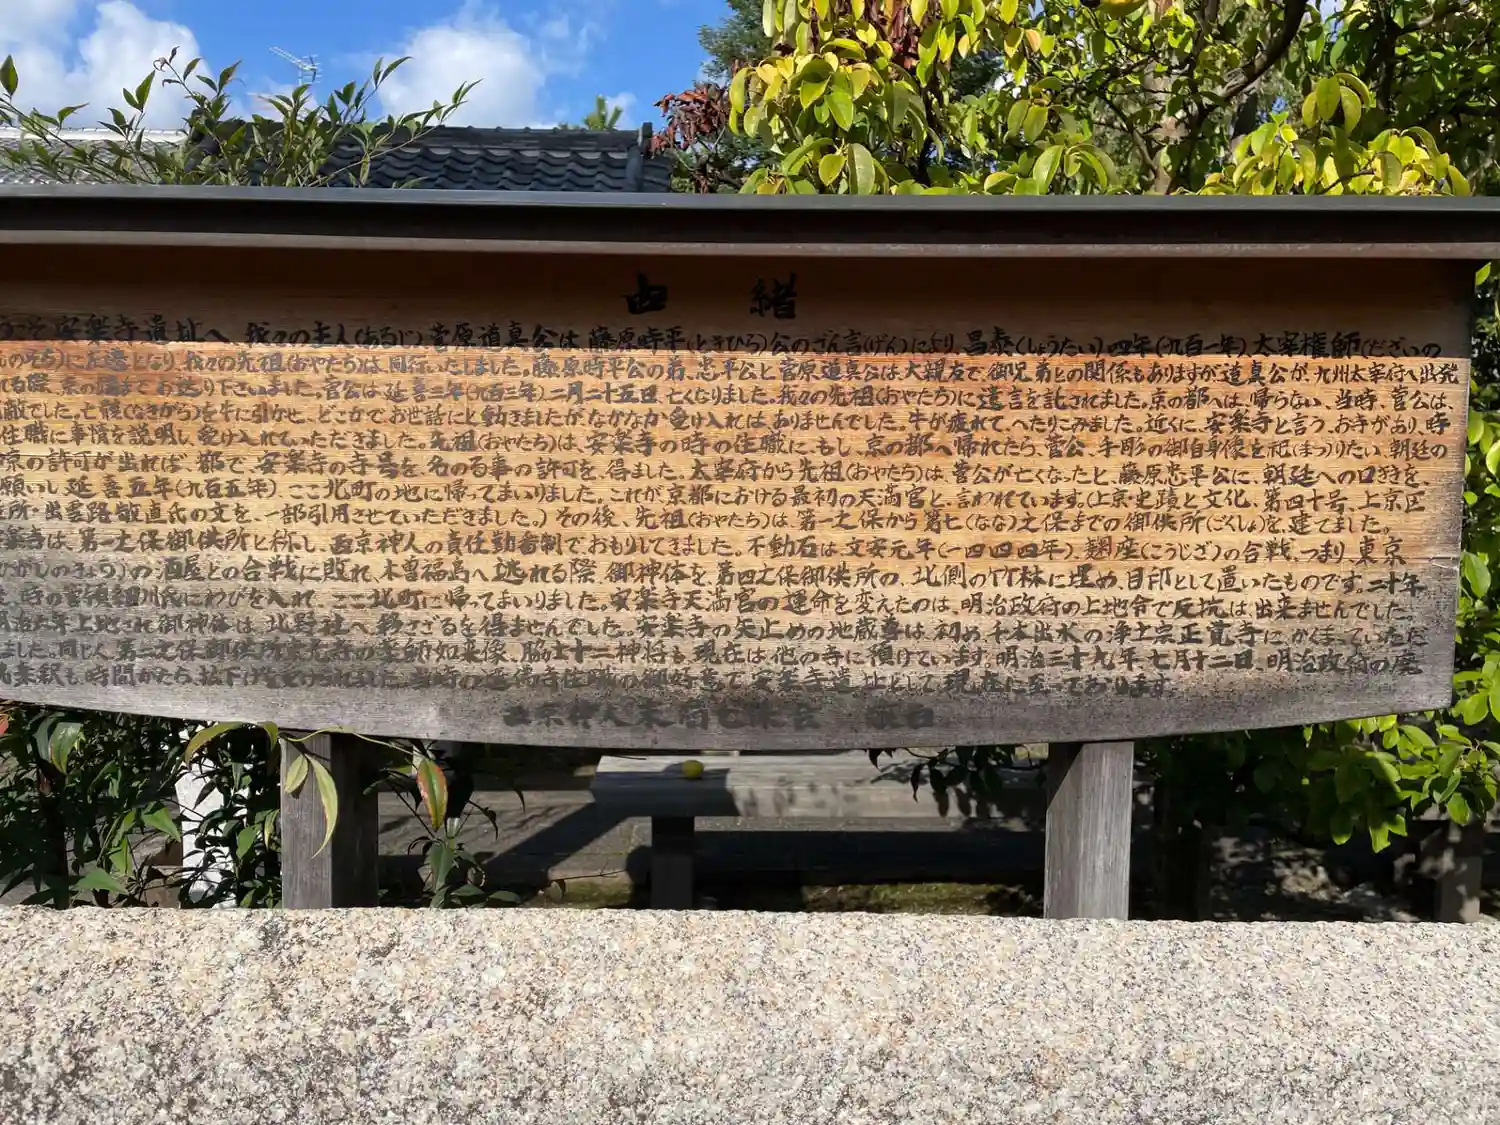 由緒
うこそ安楽寺遺址へ 我々の主人(あるじ)菅原道真公は、藤原時平(ときひろ)公のざん言(げん)により、昌泰(しょうたい)四年(九百一年)太宰権師(だざいの
ものそち)に左遷となり、我々の先祖(おやたち)は、同行いたしました。藤原時平公の弟、忠平公と菅原道真公は、大親友で、御兄弟との関係もありますが道真公が、九州太宰府へ出発
れる際、京の端までお送り下さいました。菅公は延喜三年(九百三年)二月二十五日、亡くなりました。我々の先祖(おやたち)に遺言を託されました。京の都へは、帰らない、当時、菅公は、
敵でした。亡骸(なきがら)を牛に引かせ、どこかでお世話にと動きましたがなかなか受け入れは、ありませんでした。牛が疲れて、へたりこみました。近くに、安楽寺と言う、お寺があり、時
住職に事情を説明し、受け入れていただきました。先祖(おやたち)は、安楽寺の時の住職に、もし、京の都へ帰れたら、菅公、手彫の御自身像を祀(まつ)りたい、朝廷の
京の許可が出れば、都で、安楽寺の寺号を、名のる事の許可を、得ました。太宰府から先祖(おやたち)は、菅公が亡くなったと、藤原忠平公に、朝廷への口ききを、
願いし延喜五年(九百五年)、ここ北町の地に帰ってまいりました。これが、京都における最初の天満宮と、言われています。(上京・史蹟と文化、第四十号、上京区
所・出雲路敬直氏の文を、一部引用させていただきました。)その後、先祖(おやたち)は、第一之保から第七(なな)之保までの御供所(ごくしょ)を、建てました。
楽寺は、第一之保御供所と称し、西京神人の責任勤番制でおもりしてきました。不動石は、文安元年(一四四四年)、麹座(こうじざ)の合戦、つまり、東京
ひがしのきょう)の酒屋との合戦に敗れ、木曽福島へ逃れる際、御神体を、第四之保御供所の、北側の竹林に埋め、目印として置いたものです。二十年
、時の管領細川氏にわびを入れ、ここ北町に帰ってまいりました。安楽寺天満宮の運命を変えたのは、明治政府の上地令で反抗は、出来ませんでした。
明治六年上地され御神体は、北野社へ移さざるを得ませんでした。安楽寺の矢止めの地蔵尊は、初め千本出水の浄土宗正覚寺に、かくまっていただ
ました。同じく第二之保御供所 の薬師如来像、脇士十二神将も、現在は他の寺に預けています。明治三十九年、七月十二日、明治政府の
も、時間がたち、払下げを受けられました。当時の 寺住職の御好意で、安楽寺遺址として、現在に至っております。
西京神人